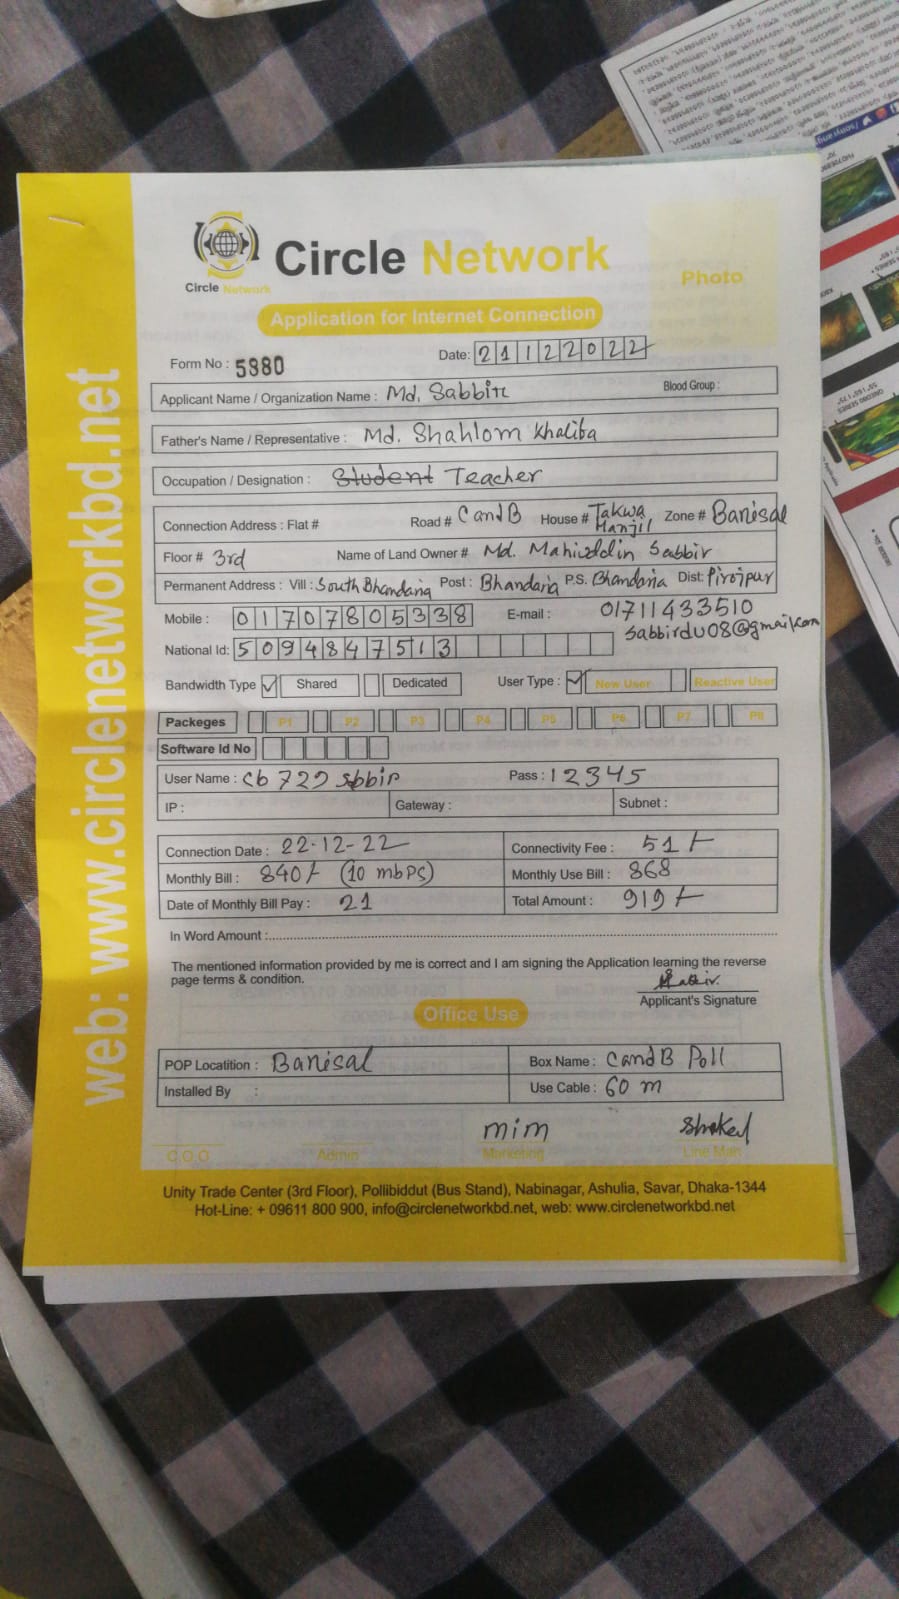 Circle Network
Circle Network
Photo
Application for Internet Connection
Form No : 5980 Date: 21122022
Applicant Name / Organization Name : Md. Sabbir Blood Group :
Father's Name / Representative : Md. Shahlom Khaliba
Occupation / Designation : Student Teacher
Connection Address : Flat # Road # C and B House # Takwa Manjil Zone # Barisal
Floor # 3rd Name of Land Owner # Md. Mahiuddin Sabbir
Permanent Address : Vill : South Bhandaria Post : Bhandaria P.S. Bhandaria Dist: Pirojpur
Mobile : 01707805338 E-mail : 01711433510
sabbirdu08@gmail.com
National Id: 5094847513
Bandwidth Type Shared Dedicated User Type : New User Reactive User
Packeges P1 P2 P3 P4 P5 P6 P7 P8
Software Id No
User Name : cb729sbbir Pass : 12345
IP : Gateway : Subnet :
Connection Date : 22-12-22 Connectivity Fee : 51/-
Monthly Bill : 840/- (10 mbps) Monthly Use Bill : 868
Date of Monthly Bill Pay : 21 Total Amount : 919/-
In Word Amount :
The mentioned information provided by me is correct and I am signing the Application learning the reverse
page terms & condition.
Applicant's Signature
Office Use
POP Locatition : Barisal Box Name : C and B Poll
Installed By : Use Cable : 60 m
mim
C.O.O Admin Marketing Line Man
Unity Trade Center (3rd Floor), Pollibiddut (Bus Stand), Nabinagar, Ashulia, Savar, Dhaka-1344
Hot-Line: + 09611 800 900, info@circlenetworkbd.net, web: www.circlenetworkbd.net
web: www.circlenetworkbd.net